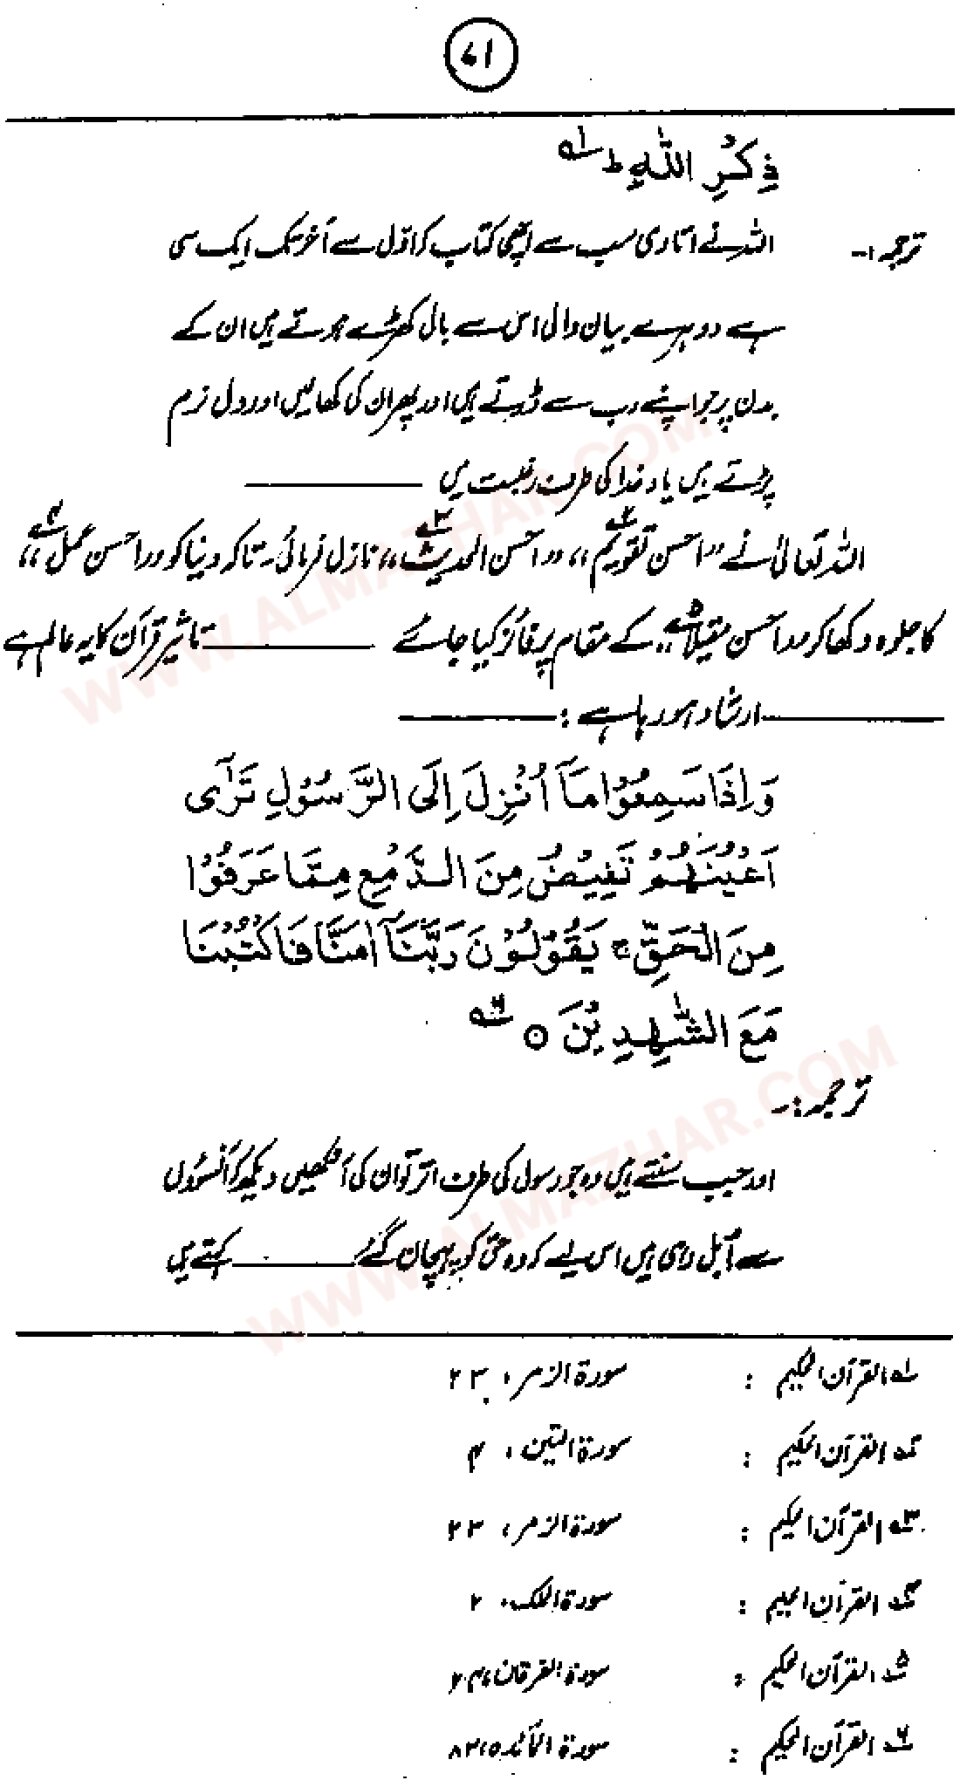 ۷۱
ذِکْرِ اللّٰہِ ط ؎۱
ترجمہ :- اللہ نے اتاری سب سے اچھی کتاب کہ اوّل سے آخر تک ایک سی
ہے دوہرے بیان والی اس سے بال کھڑے ہوتے ہیں ان کے
بدن پر جو اپنے رب سے ڈرتے ہیں اور پھر ان کی کھالیں اور دل نرم
پڑتے ہیں یاد خدا کی طرف رغبت میں ————
اللہ تعالیٰ نے "احسن تقویم"؎۲ ، "احسن الحدیث"؎۳ نازل فرمائی۔ تاکہ دنیا کو "احسن عمل"؎۴
کا جلوہ دکھا کر "احسن مقیلا"؎۵ کے مقام پر فائز کیا جائے ———— تاثیر قرآن کا یہ عالم ہے
———— ارشاد ہو رہا ہے : ————
وَاِذَا سَمِعُوْا مَآ اُنْزِلَ اِلَى الرَّسُوْلِ تَرٰٓى
اَعْيُنَهُمْ تَفِيْضُ مِنَ الدَّمْعِ مِمَّا عَرَفُوْا
مِنَ الْحَقِّ ج يَقُوْلُوْنَ رَبَّنَآ اٰمَنَّا فَاكْتُبْنَا
مَعَ الشّٰهِدِيْنَ ○ ؎۶
ترجمہ :-
اور جب سنتے ہیں وہ جو رسول کی طرف اترا تو ان کی آنکھیں دیکھو کہ آنسوؤں
سے ابل رہی ہیں اس لیے کہ وہ حق کو پہچان گئے ———— کہتے ہیں
؎۱ القرآن الحکیم : سورۃ الزمر، ۲۳
؎۲ القرآن الحکیم : سورۃ التین، ۴
؎۳ القرآن الحکیم : سورۃ الزمر، ۲۳
؎۴ القرآن الحکیم : سورۃ الملک، ۲
؎۵ القرآن الحکیم : سورۃ الفرقان، ۲۴
؎۶ القرآن الحکیم : سورۃ المآئدہ ۵، ۸۳
WWW.ALMAZHAR.COM
WWW.ALMAZHAR.COM